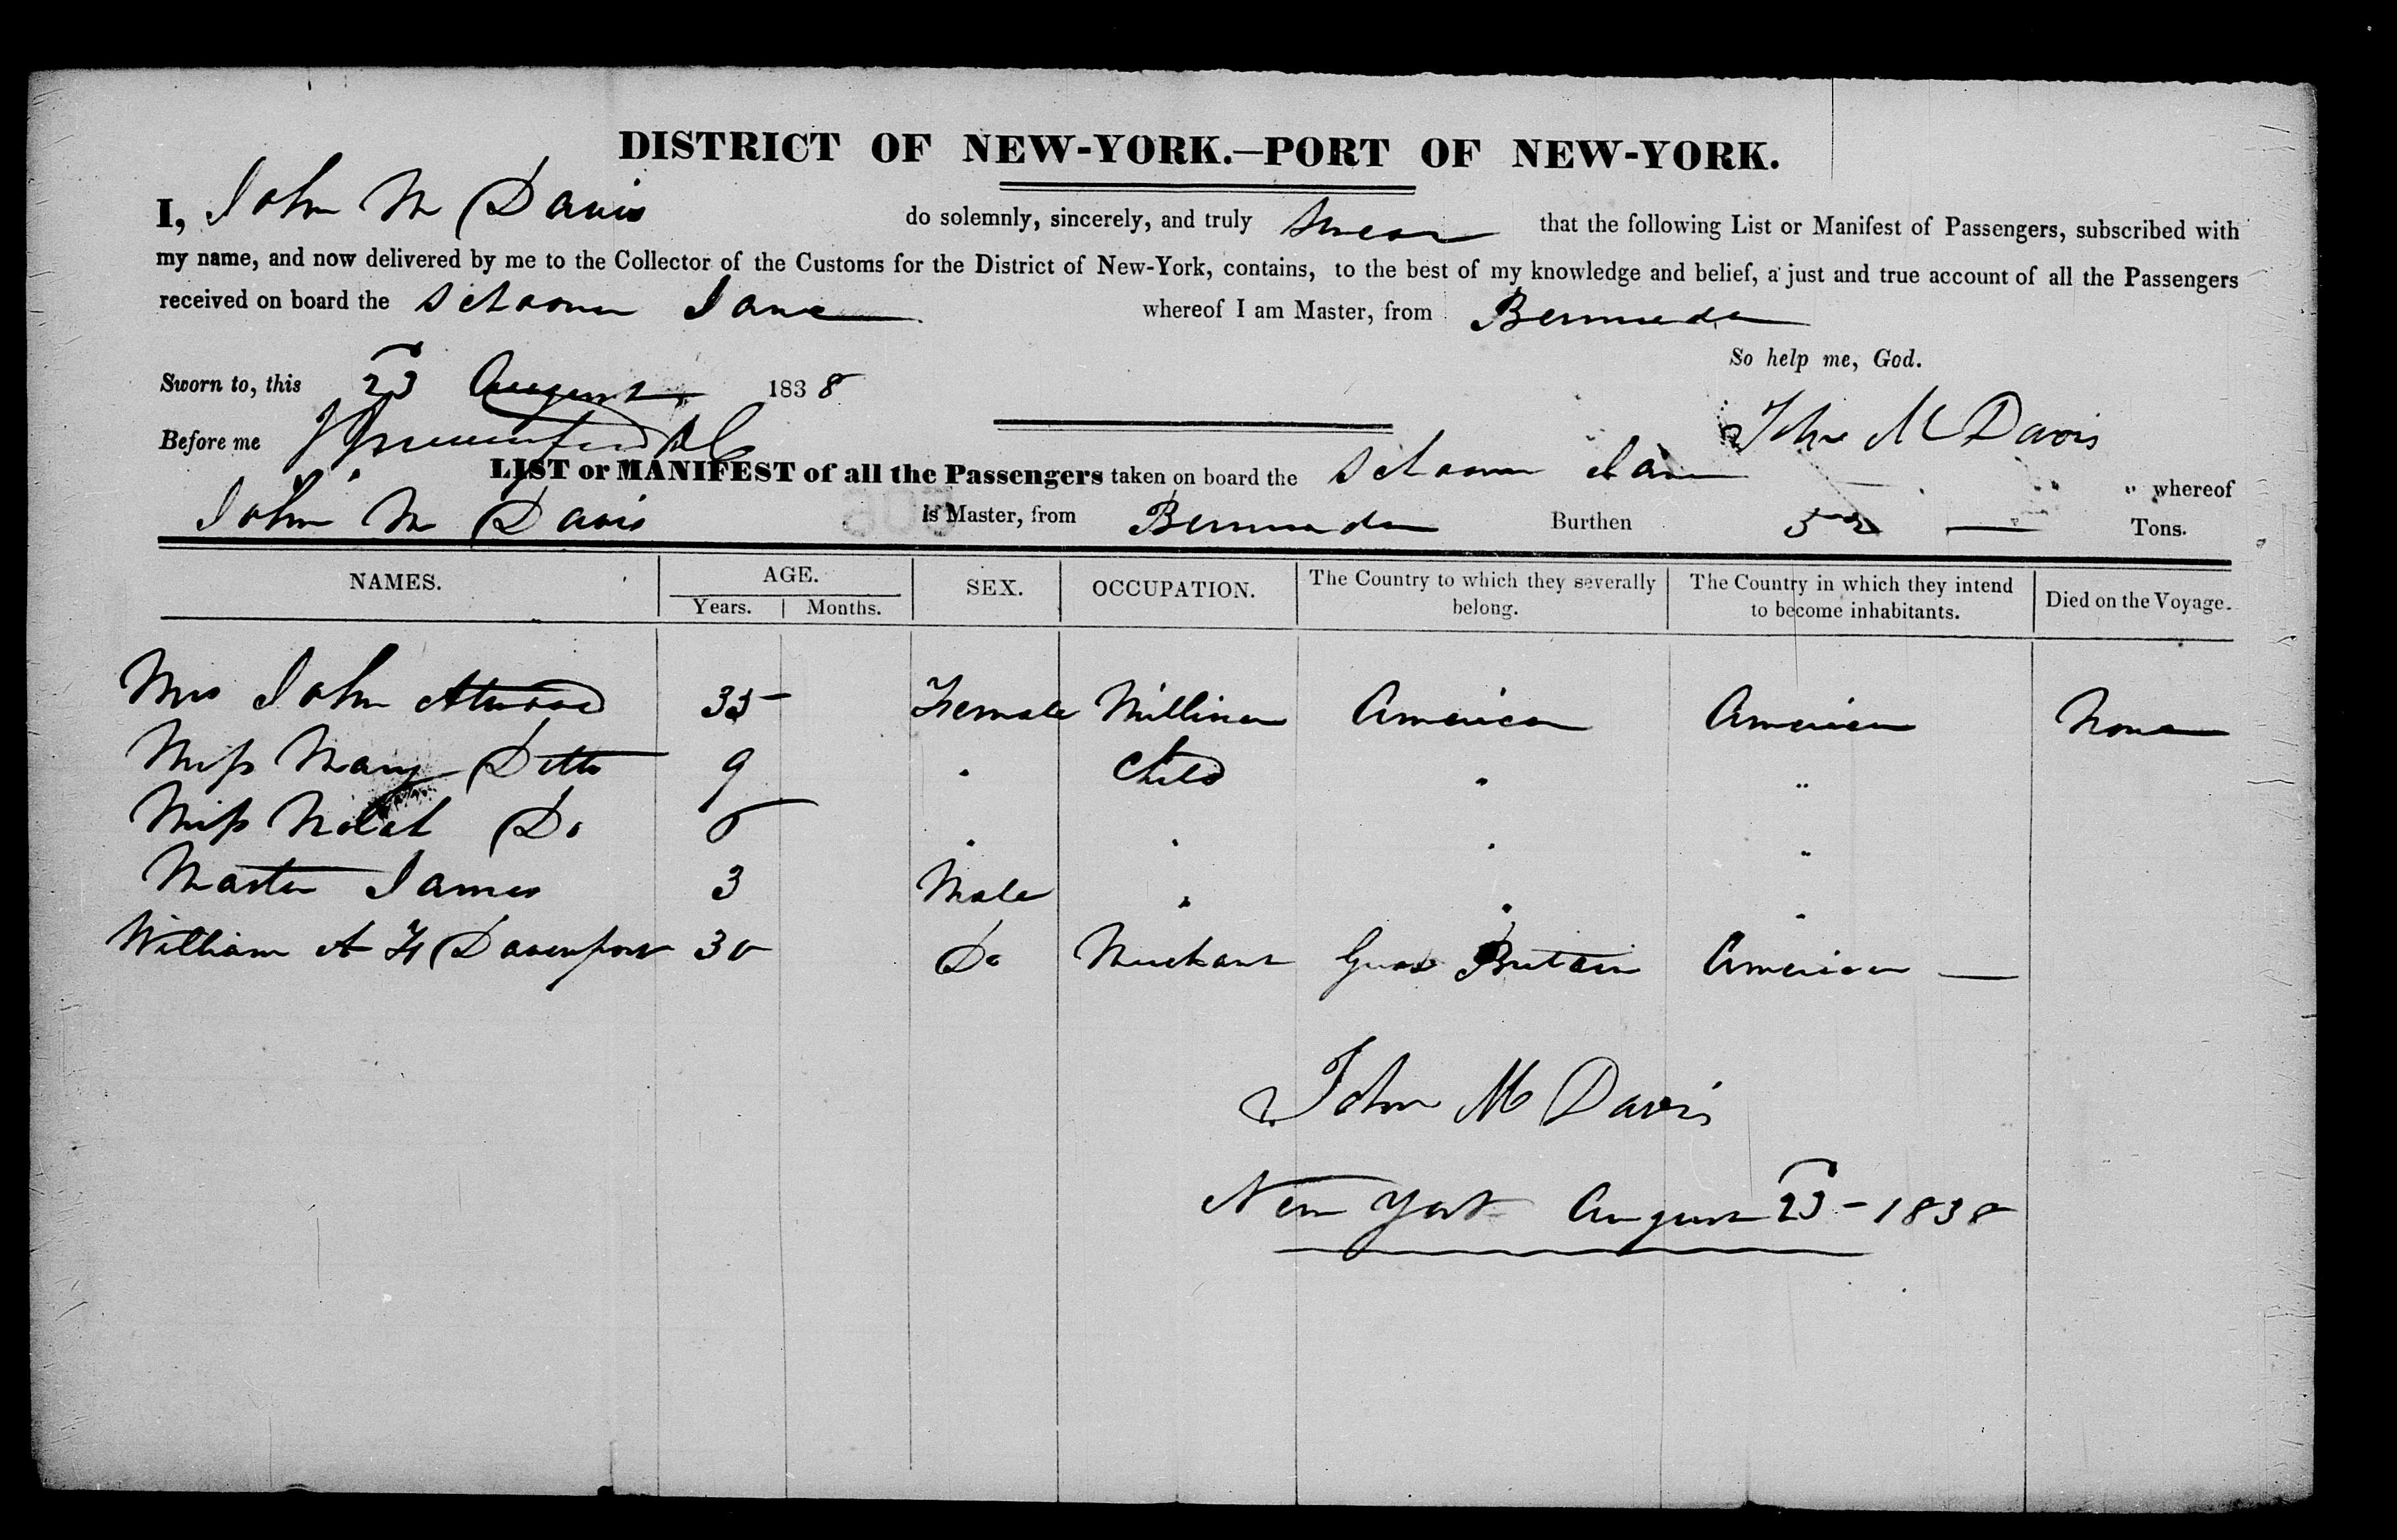 DISTRICT OF NEW-YORK.—PORT OF NEW-YORK.
I, John M Davis do solemnly, sincerely, and truly swear that the following List or Manifest of Passengers, subscribed with
my name, and now delivered by me to the Collector of the Customs for the District of New-York, contains, to the best of my knowledge and belief, a just and true account of all the Passengers
received on board the Schooner Jane whereof I am Master, from Bermuda
So help me, God.
Sworn to, this 23 August 1838
John M Davis
Before me
LIST or MANIFEST of all the Passengers taken on board the Schooner Jane whereof
John M Davis is Master, from Bermuda Burthen 52 Tons.
NAMES. AGE. Years. Months. SEX. OCCUPATION. The Country to which they severally belong. The Country in which they intend to become inhabitants. Died on the Voyage.
Mrs John Atwood 35 Female Milliner America America None
Miss Mary Ditto 9 " Child " "
Miss Do " " " "
Master James 3 Male " " "
William A H Davenport 30 Do Merchant Great Britain America —
John M Davis
New York August 23 - 1838